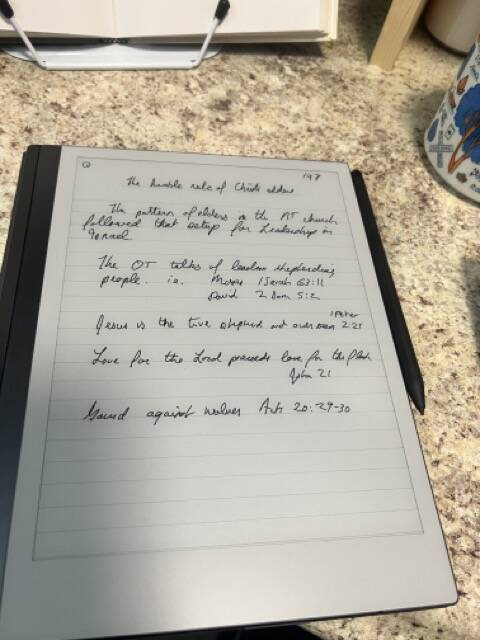 147
The humble rule of Christ's elders
The pattern of elders in the NT church
followed that setup for Leadership in
Israel
The OT talks of leaders shepherding
people. i.e. Moses Isaiah 63:11
David 2 Sam 5:2
1 Peter
Jesus is the true shepherd and overseer 2:25
Love for the Lord precedes love for the flock
John 21
Guard against wolves Acts 20:29-30